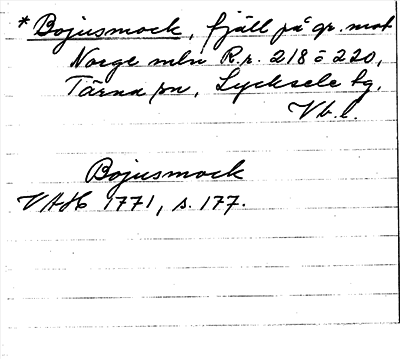 * Bojusmock, fjäll på gr. mot
Norge mln R.r. 218 o 220,
Tärna sn, Lycksele tg.
Vb. l.
Bojusmock
VAH 1771, s. 177.